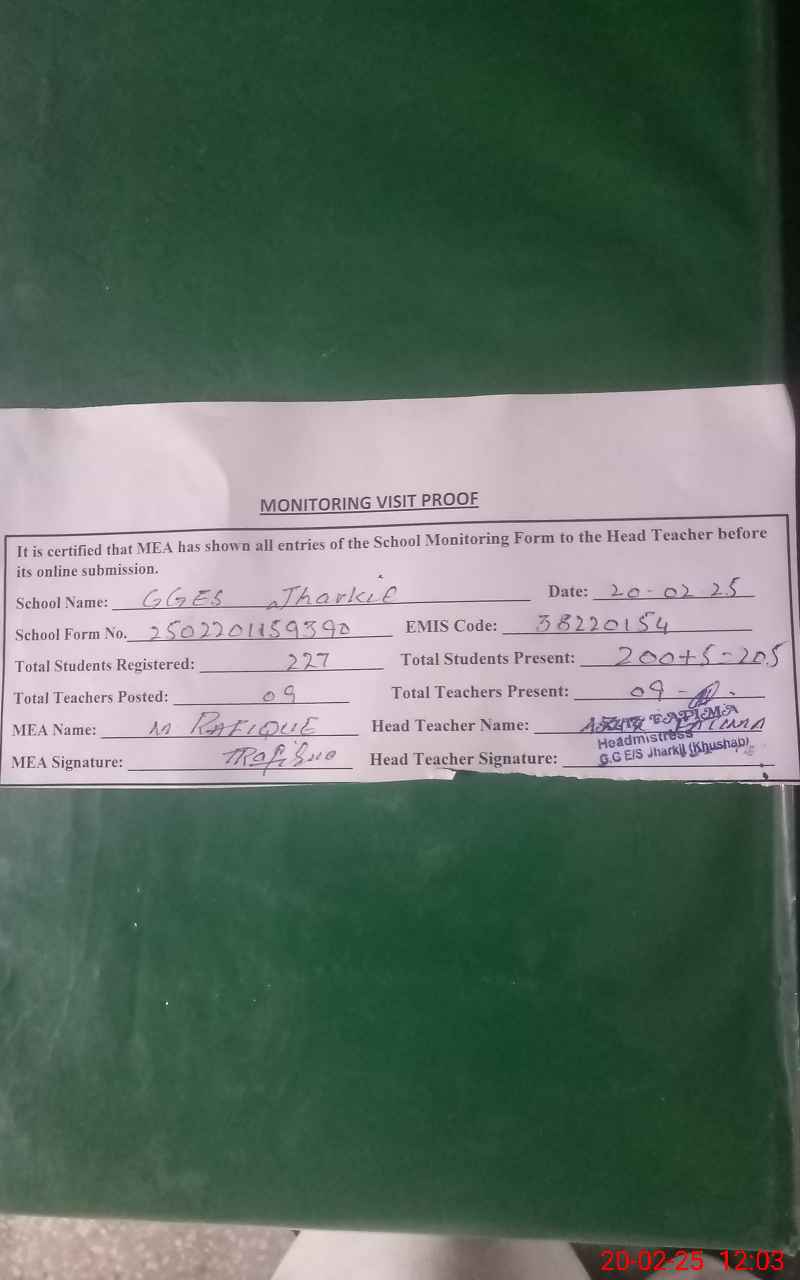 MONITORING VISIT PROOF
It is certified that MEA has shown all entries of the School Monitoring Form to the Head Teacher before
its online submission.
School Name: GGES Jharkil Date: 20-02 25
School Form No. EMIS Code: 38220154
Total Students Registered: 227 Total Students Present: 200+5-205
Total Teachers Posted: 09 Total Teachers Present: 09 -
MEA Name: M RAFIQUE Head Teacher Name: FATIMA
Headmistress
MEA Signature: Head Teacher Signature: G.G E/S Jharkil (Khushab)
20-02-25 12:03